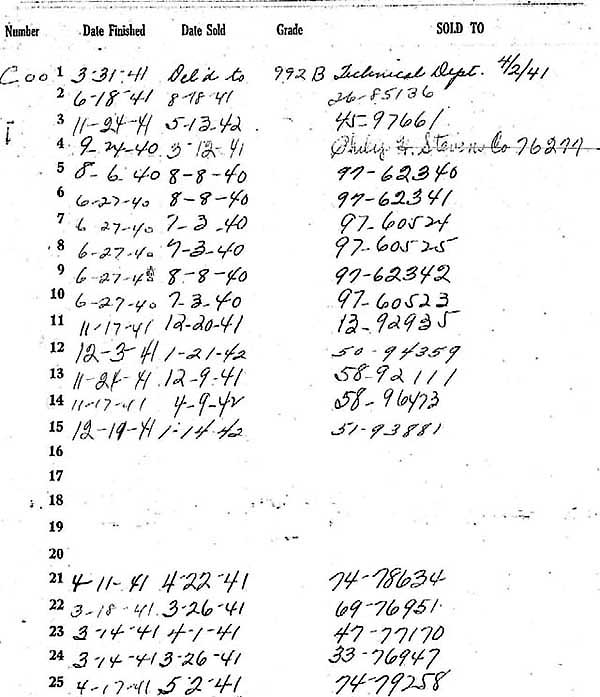 Number Date Finished Date Sold Grade SOLD TO
C001 3-31-41 Del'd to 992B Technical Dept. 4/2/41
2 6-18-41 8-18-41 26-85136
3 11-24-41 5-13-42 45-97661
4 9-24-40 3-12-41 Stevens Co 76277
5 8-6-40 8-8-40 97-62340
6 6-27-40 8-8-40 97-62341
7 6-27-40 7-3-40 97-60524
8 6-27-40 7-3-40 97-60525
9 6-27-40 8-8-40 97-62342
10 6-27-40 7-3-40 97-60523
11 11-17-41 12-20-41 13-92935
12 12-3-41 1-21-42 50-94359
13 11-24-41 12-9-41 58-92111
14 11-17-41 4-9-42 58-96473
15 12-19-41 1-14-42 51-93881
16
17
18
19
20
21 4-11-41 4-22-41 74-78634
22 3-18-41 3-26-41 69-76951
23 3-14-41 4-1-41 47-77170
24 3-14-41 3-26-41 33-76947
25 4-17-41 5-2-41 74-79258